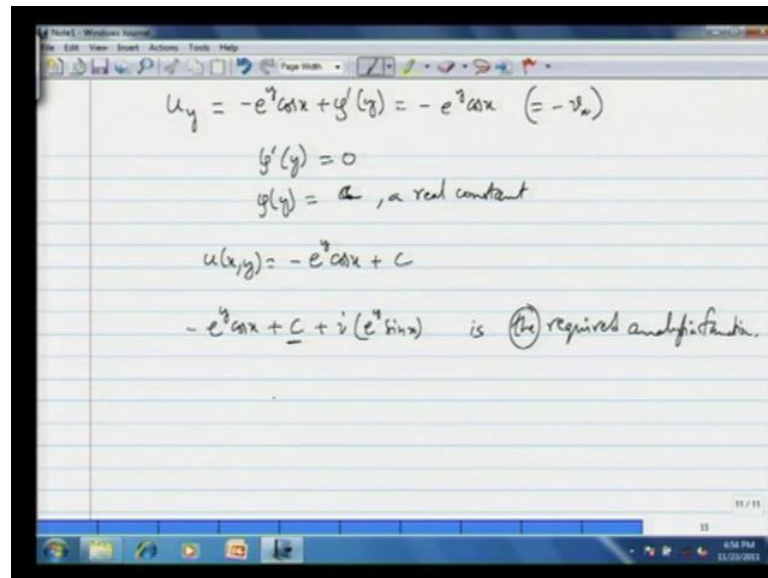 Note1 - Windows Journal
File Edit View Insert Actions Tools Help
Page Width
u_y = -e^y cosx + φ'(y) = - e^y cosx (= - v_x)
φ'(y) = 0
φ(y) = c, a real constant
u(x,y) = - e^y cosx + C
- e^y cosx + C + i (e^y sinx) is the required analytic function.
11 / 11
11
4:54 PM
11/23/2011